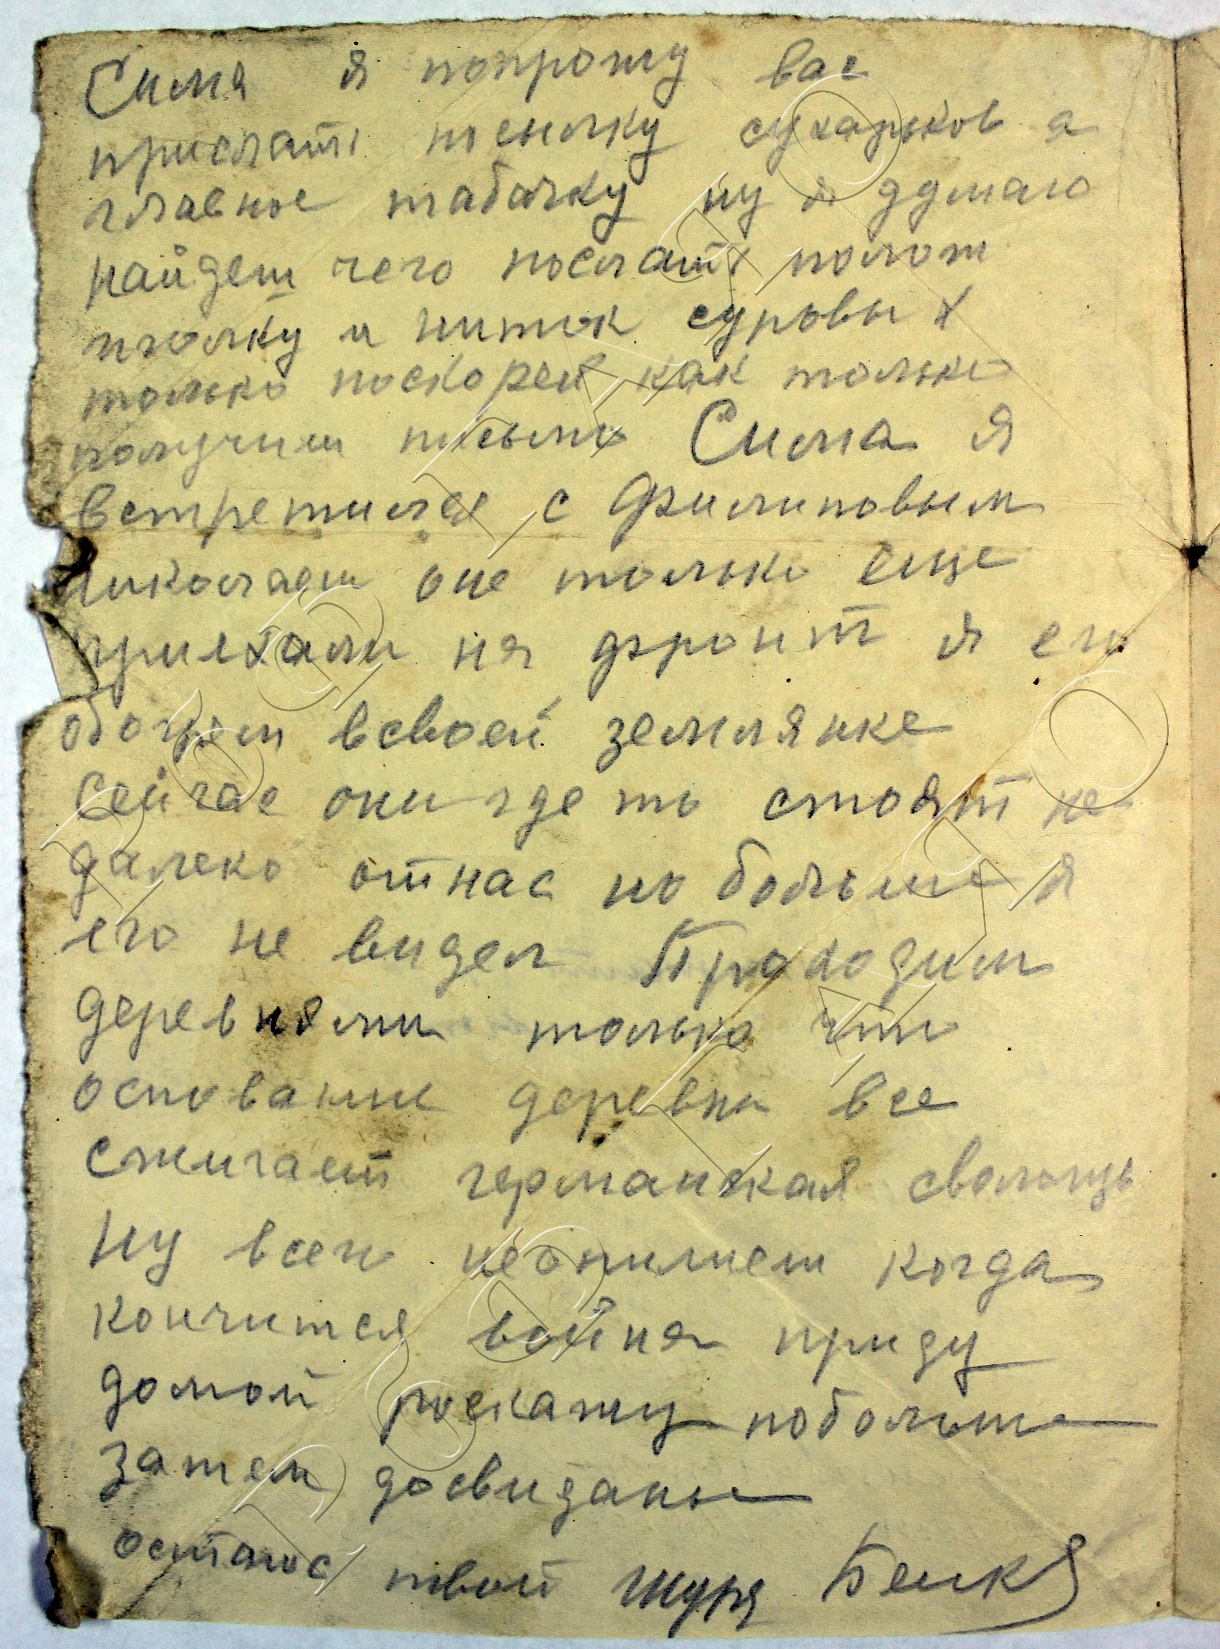 Сима я попрошу вас
прислать посылку сухарьков а
главное табачку ну я думаю
найдеш чего послать полож
иголку и ниток суровых
только поскорей как только
получиш письмо Сима я
встретился с Филиповым
Николаем оне только еще
приехали на фронт я его
обогрел всвоей землянке
сейчас они где то стоят не
далеко отнас но больше я
его не видел Проходим
деревнями только что
основание деревни все
сжигает германская сволощь
ну всего неопишеш когда
кончится война приду
домой роскажу побольше
затем досвиданье
остаюс твой Шура